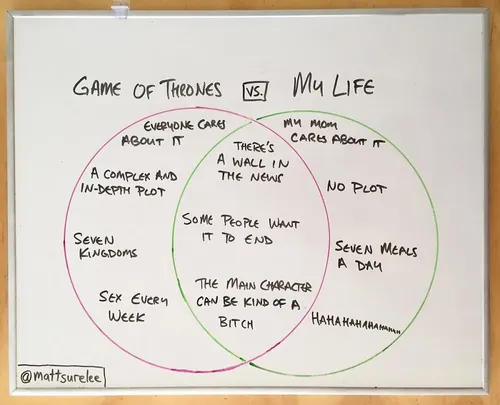 GAME OF THRONES VS. MY LIFE
EVERYONE CARES
ABOUT IT
A COMPLEX AND
IN-DEPTH PLOT
SEVEN
KINGDOMS
SEX EVERY
WEEK
THERE'S
A WALL IN
THE NEWS
SOME PEOPLE WANT
IT TO END
THE MAIN CHARACTER
CAN BE KIND OF A
BITCH
MY MOM
CARES ABOUT IT
NO PLOT
SEVEN MEALS
A DAY
HAHAHAHAHAHAHAHA
@mattsurelee